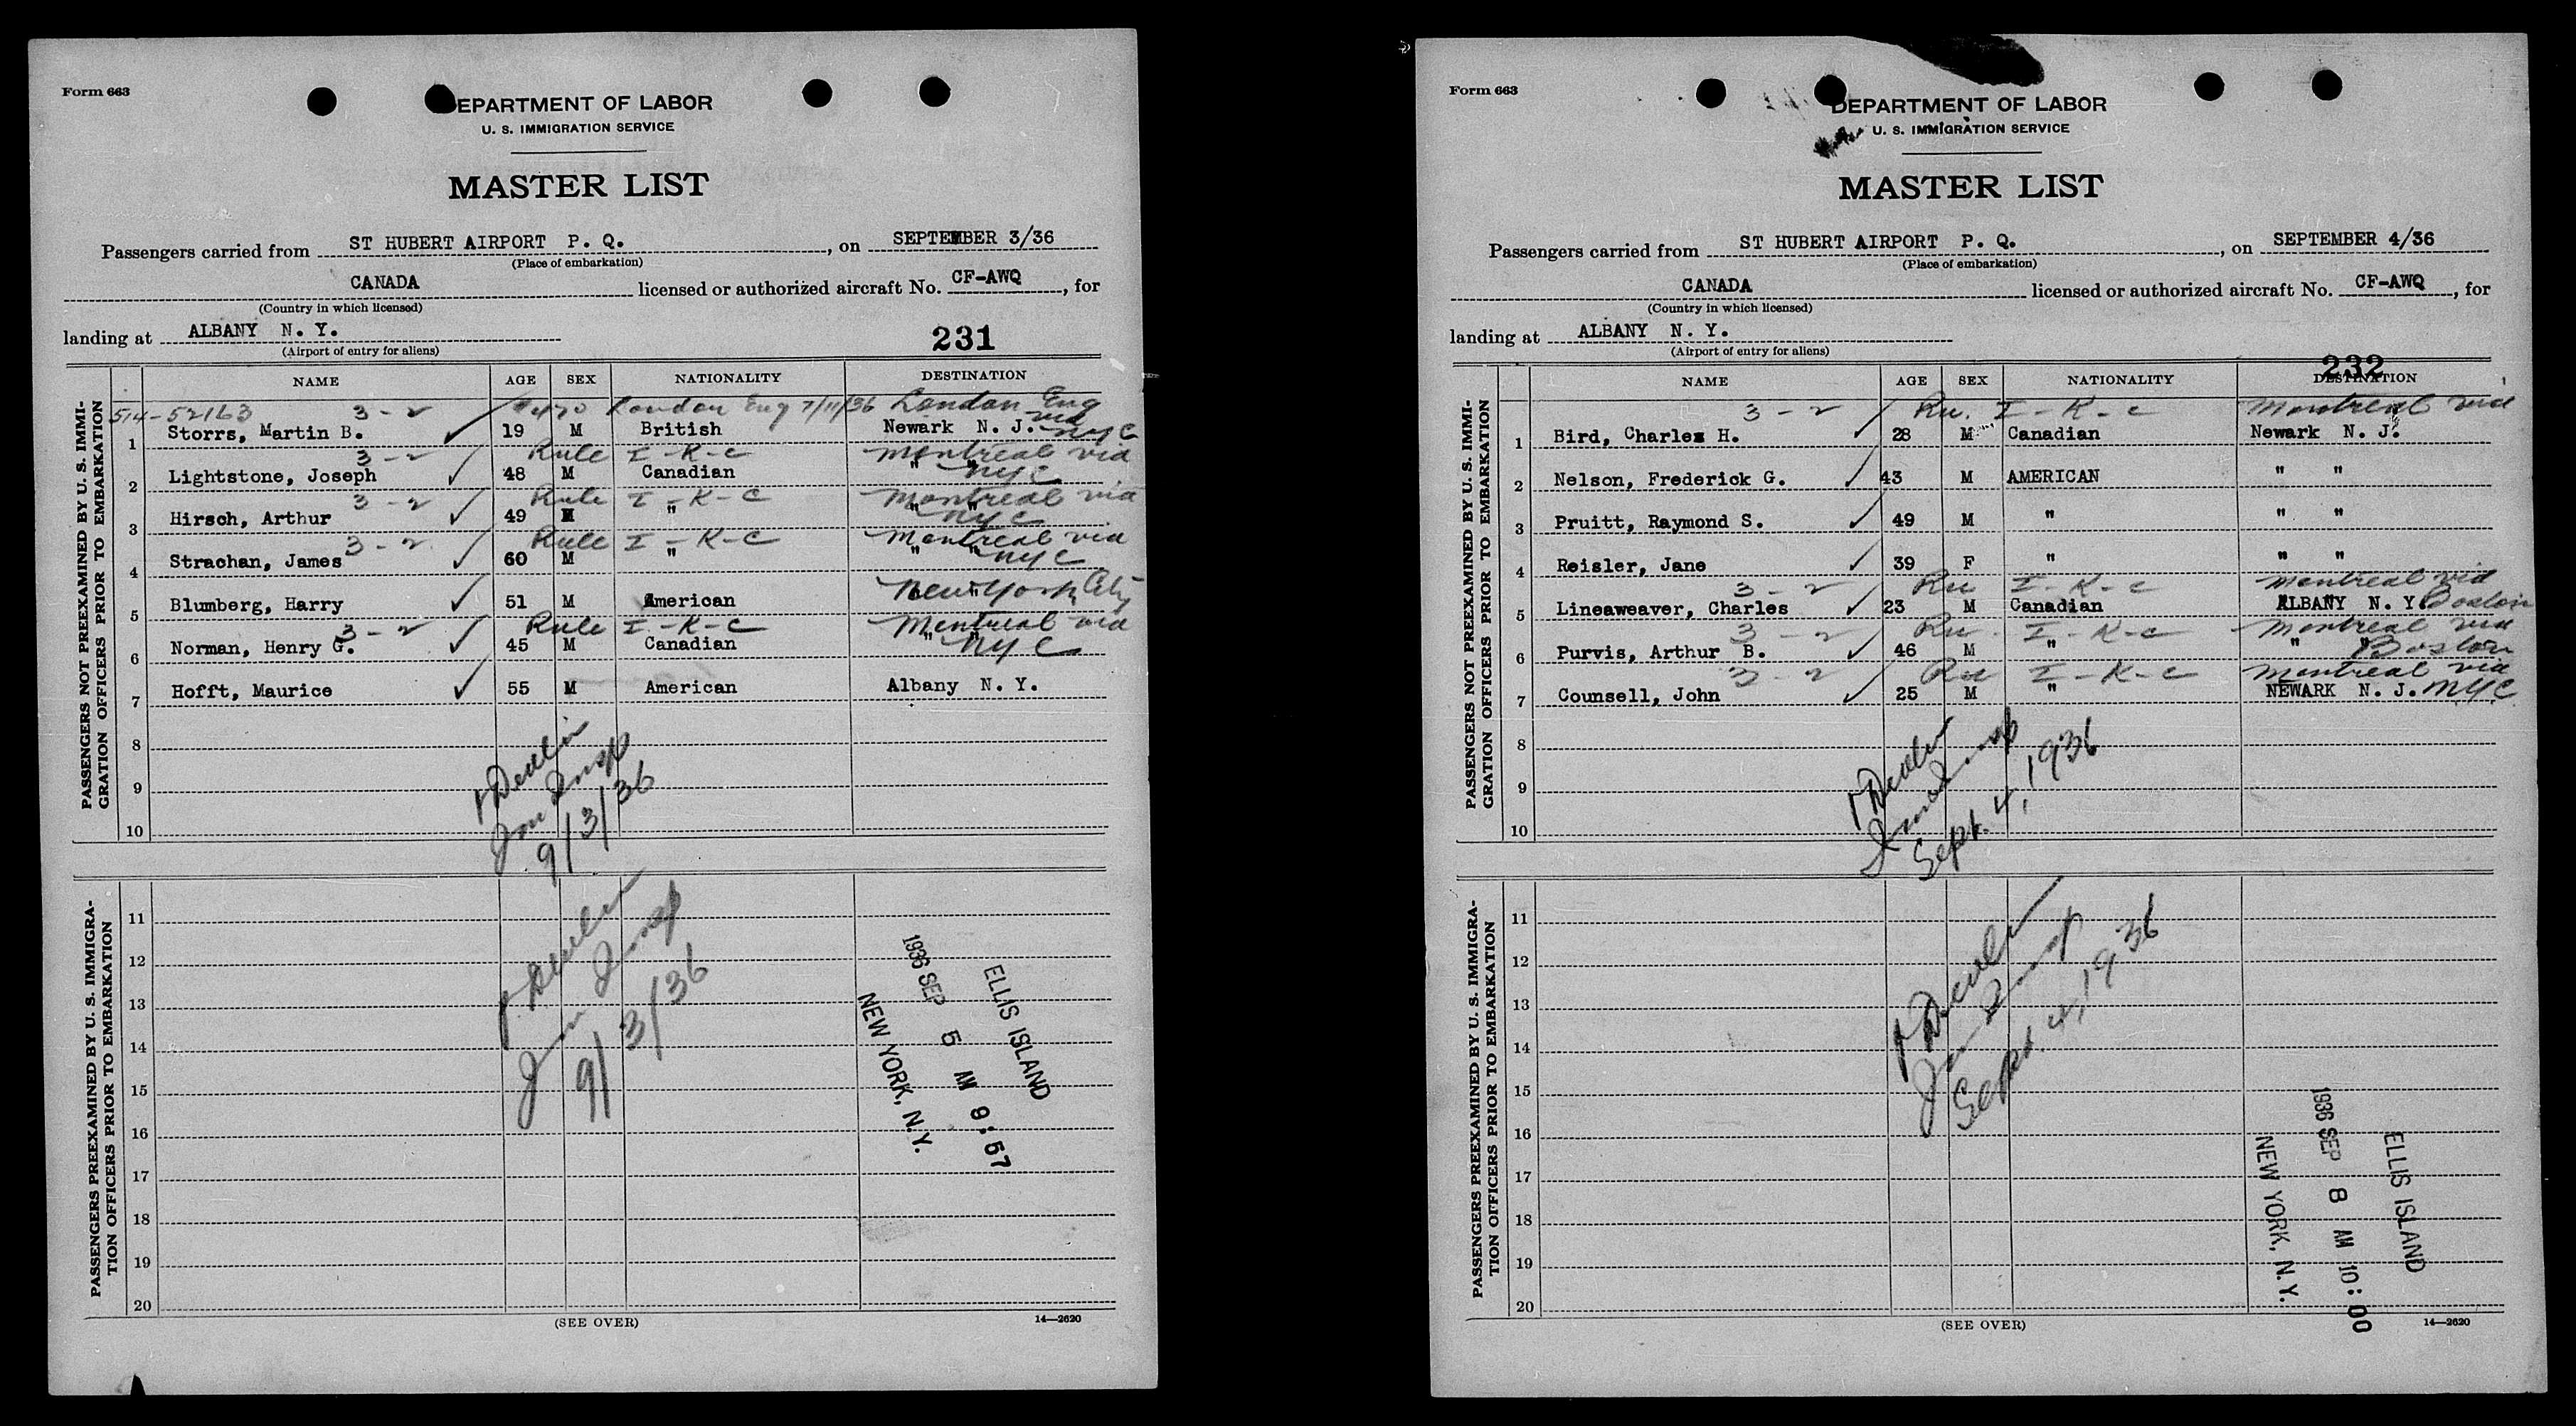 Form 663
DEPARTMENT OF LABOR
U. S. IMMIGRATION SERVICE
MASTER LIST
Passengers carried from ST HUBERT AIRPORT P. Q., on SEPTEMBER 3/36
(Place of embarkation)
CANADA licensed or authorized aircraft No. CF-AWQ, for
(Country in which licensed)
landing at ALBANY N. Y.
(Airport of entry for aliens)
231
NAME AGE SEX NATIONALITY DESTINATION
PASSENGERS NOT PREEXAMINED BY U. S. IMMI-
GRATION OFFICERS PRIOR TO EMBARKATION
514-52163 3-2 London Eng 7/11/36 London Eng
via
1 Storrs, Martin B. 19 M British Newark N. J. NYC
3-2 Rule I-K-C Montreal via
2 Lightstone, Joseph 48 M Canadian " " NYC
3-2 Rule I-K-C Montreal via
3 Hirsch, Arthur 49 M " " " NYC
3-2 Rule I-K-C Montreal via
4 Strachan, James 60 M " " " NYC
New York City
5 Blumberg, Harry 51 M American " "
3-2 Rule I-K-C Montreal via
6 Norman, Henry G. 45 M Canadian " " NYC
7 Hofft, Maurice 55 M American Albany N. Y.
8
9
10
Devlin
Imm Insp
9/3/36
PASSENGERS PREEXAMINED BY U. S. IMMIGRA-
TION OFFICERS PRIOR TO EMBARKATION
11
12
13
14
15
16
17
18
19
20
Devlin
Imm Insp
9/3/36
ELLIS ISLAND
1936 SEP 5 AM 9:57
NEW YORK, N.Y.
(SEE OVER)
14—2620
Form 663
DEPARTMENT OF LABOR
U. S. IMMIGRATION SERVICE
MASTER LIST
Passengers carried from ST HUBERT AIRPORT P. Q., on SEPTEMBER 4/36
(Place of embarkation)
CANADA licensed or authorized aircraft No. CF-AWQ, for
(Country in which licensed)
landing at ALBANY N. Y.
(Airport of entry for aliens)
232
NAME AGE SEX NATIONALITY DESTINATION
PASSENGERS NOT PREEXAMINED BY U. S. IMMI-
GRATION OFFICERS PRIOR TO EMBARKATION
3-2 Ru. I-K-C Montreal via
1 Bird, Charles H. 28 M Canadian Newark N. J.
2 Nelson, Frederick G. 43 M AMERICAN " "
3 Pruitt, Raymond S. 49 M " " "
4 Reisler, Jane 39 F " " "
3-2 Ru I-K-C Montreal via
5 Lineaweaver, Charles 23 M Canadian ALBANY N. Y. Boston
3-2 Ru. I-K-C Montreal via
6 Purvis, Arthur B. 46 M " " " Boston
3-2 Ru I-K-C Montreal via
7 Counsell, John 25 M " NEWARK N. J. NYC
8
9
10
Devlin
Imm Insp
Sept. 4, 1936
PASSENGERS PREEXAMINED BY U. S. IMMIGRA-
TION OFFICERS PRIOR TO EMBARKATION
11
12
13
14
15
16
17
18
19
20
Devlin
Imm Insp
Sept. 4, 1936
ELLIS ISLAND
1936 SEP 8 AM 10:00
NEW YORK, N.Y.
(SEE OVER)
14—2620